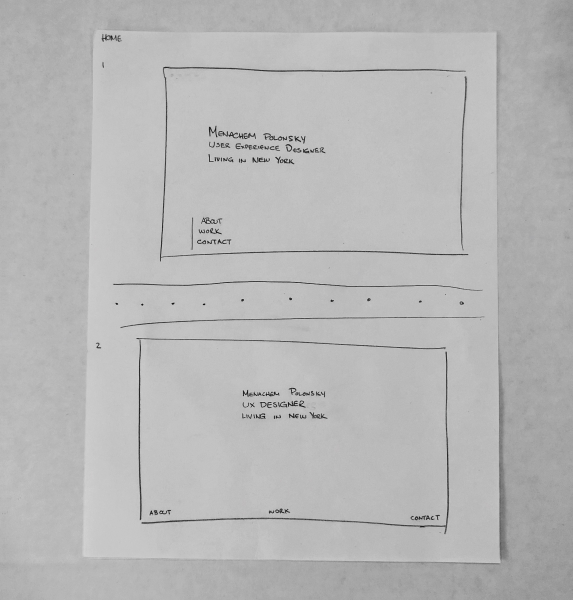 HOME
1
MENACHEM POLONSKY
USER EXPERIENCE DESIGNER
LIVING IN NEW YORK
ABOUT
WORK
CONTACT
2
MENACHEM POLONSKY
UX DESIGNER
LIVING IN NEW YORK
ABOUT WORK CONTACT